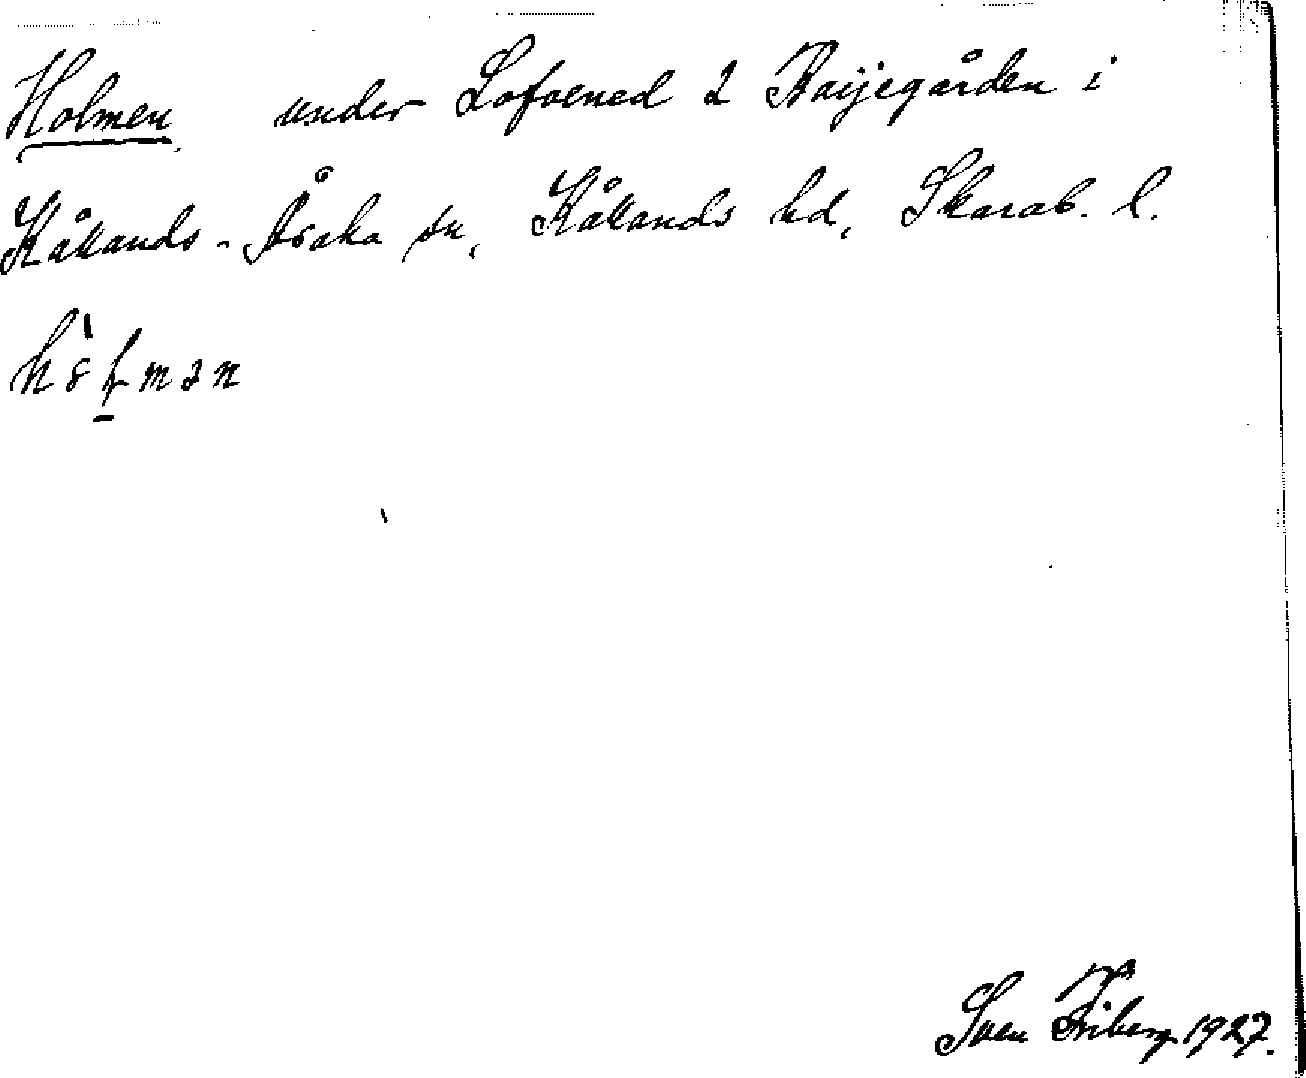 Holmen under Lofoened 2 Baijegården i
Kållands-Åsaka sn, Kållands hd, Skarab. l.
Sven Friberg 1927.